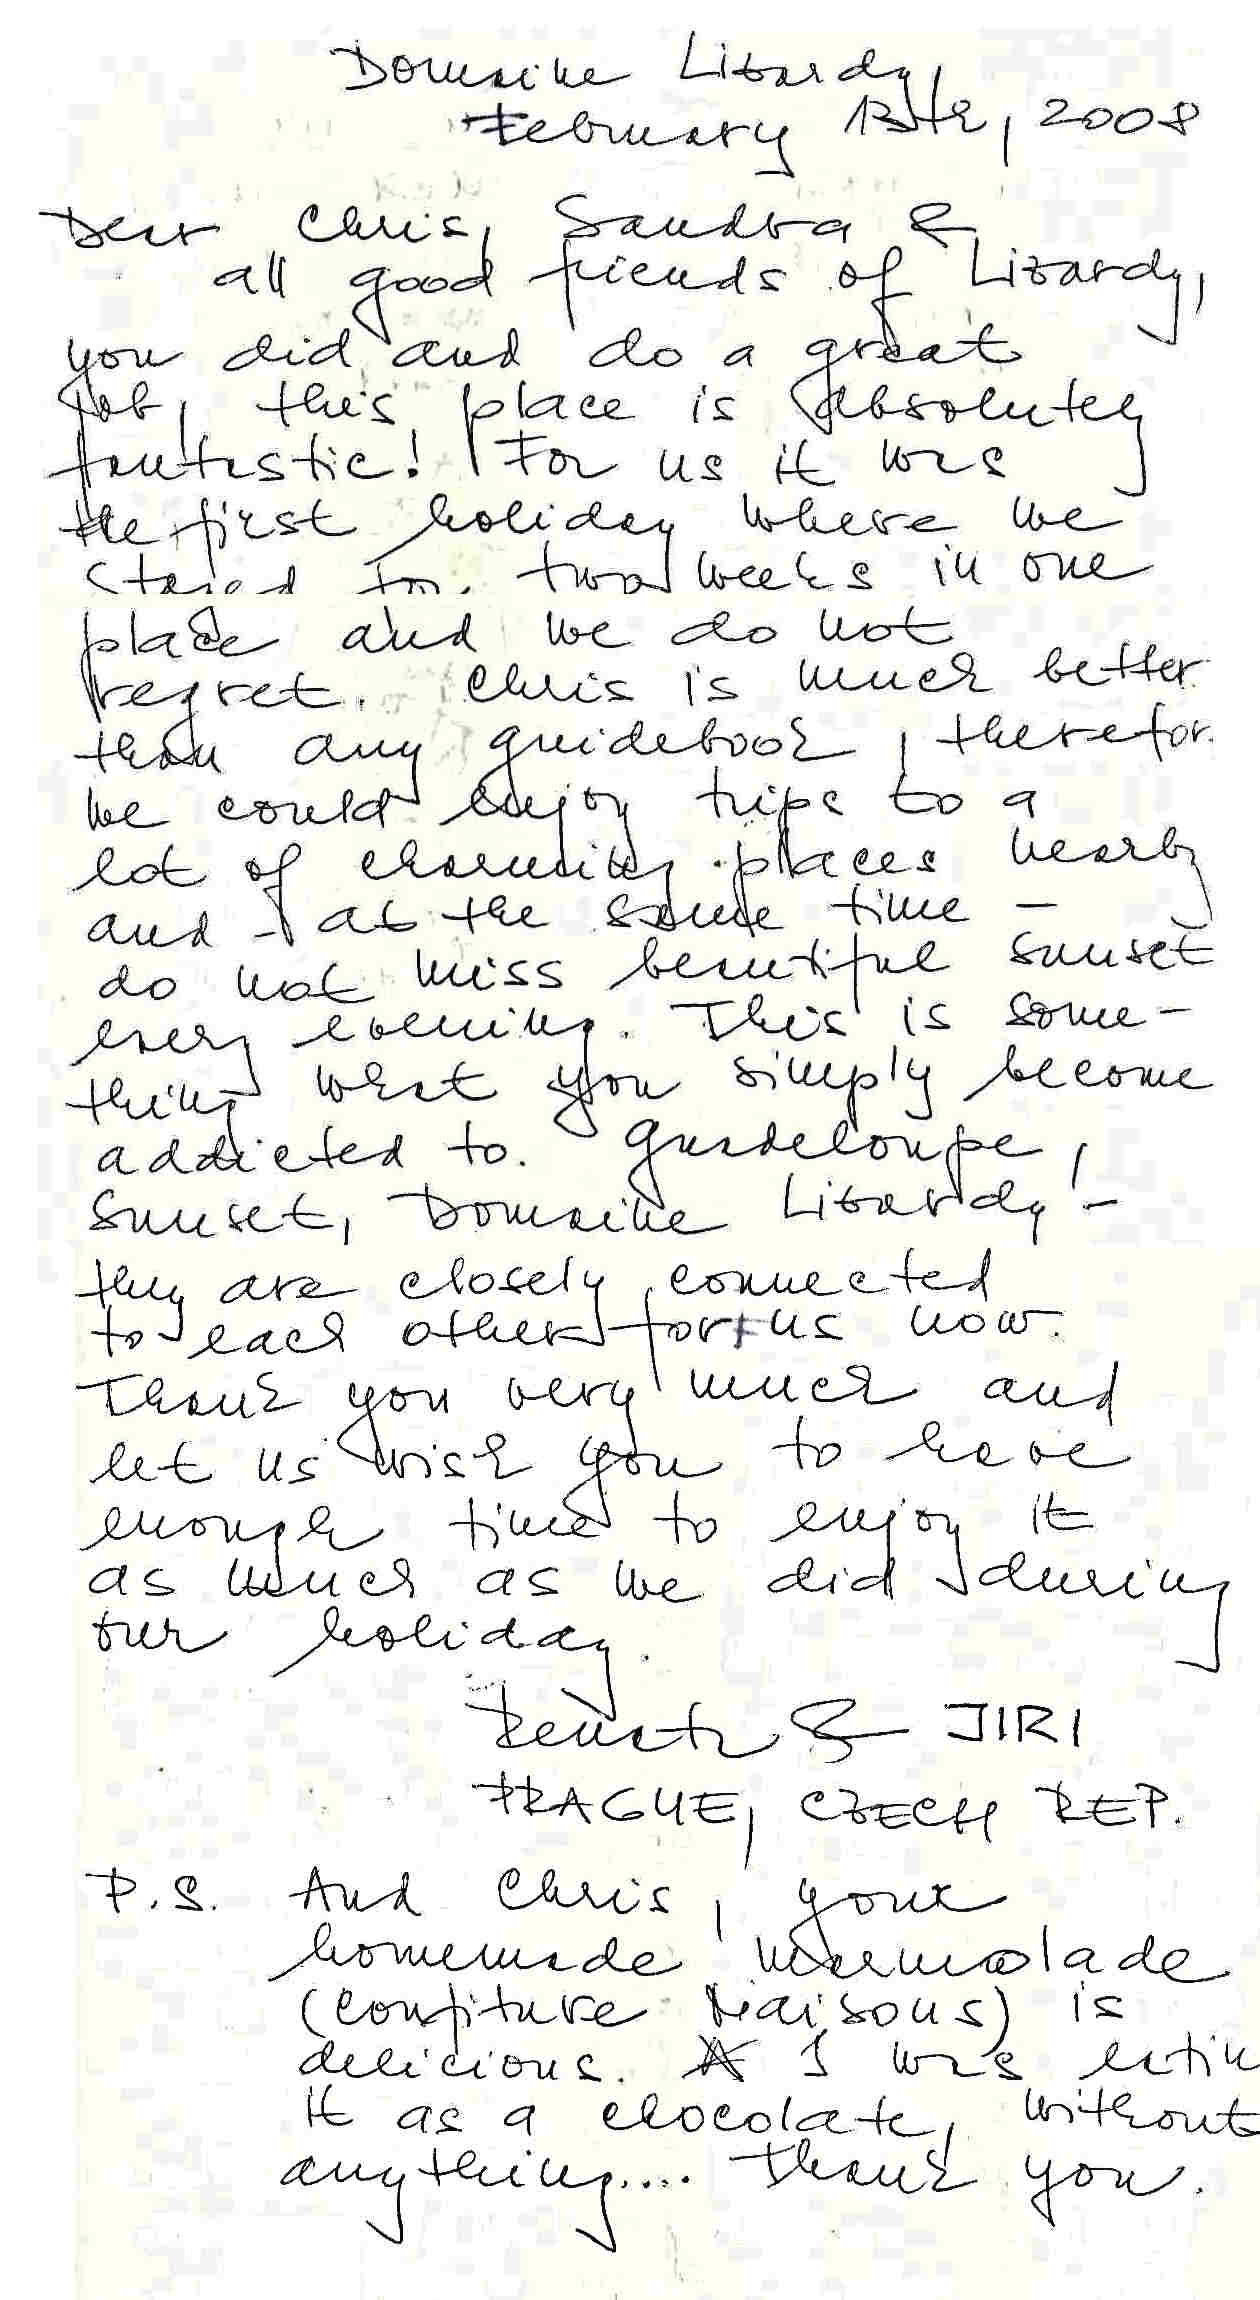 Domaine Lizardy,
February 13th, 2008
Dear Chris, Sandra &
all good friends of Lizardy,
you did and do a great
job, this place is absolutely
fantastic! For us it was
the first holiday where we
stayed for two weeks in one
place and we do not
regret. Chris is much better
than any guidebook, therefor
we could enjoy trips to a
lot of charming places nearby
and - at the same time -
do not miss beautiful sunset
every evening. This is some-
thing what you simply become
addicted to. Guadeloupe,
Sunset, Domaine Lizardy -
they are closely connected
to each other for us now.
Thank you very much and
let us wish you to have
enough time to enjoy it
as much as we did during
our holiday.
Renata & JIRI
PRAGUE, CZECH REP.
P.S. And Chris, your
homemade marmolade
(Confiture Maisons) is
delicious. I was eatin
it as a chocolate, without
anything.... Thank you.